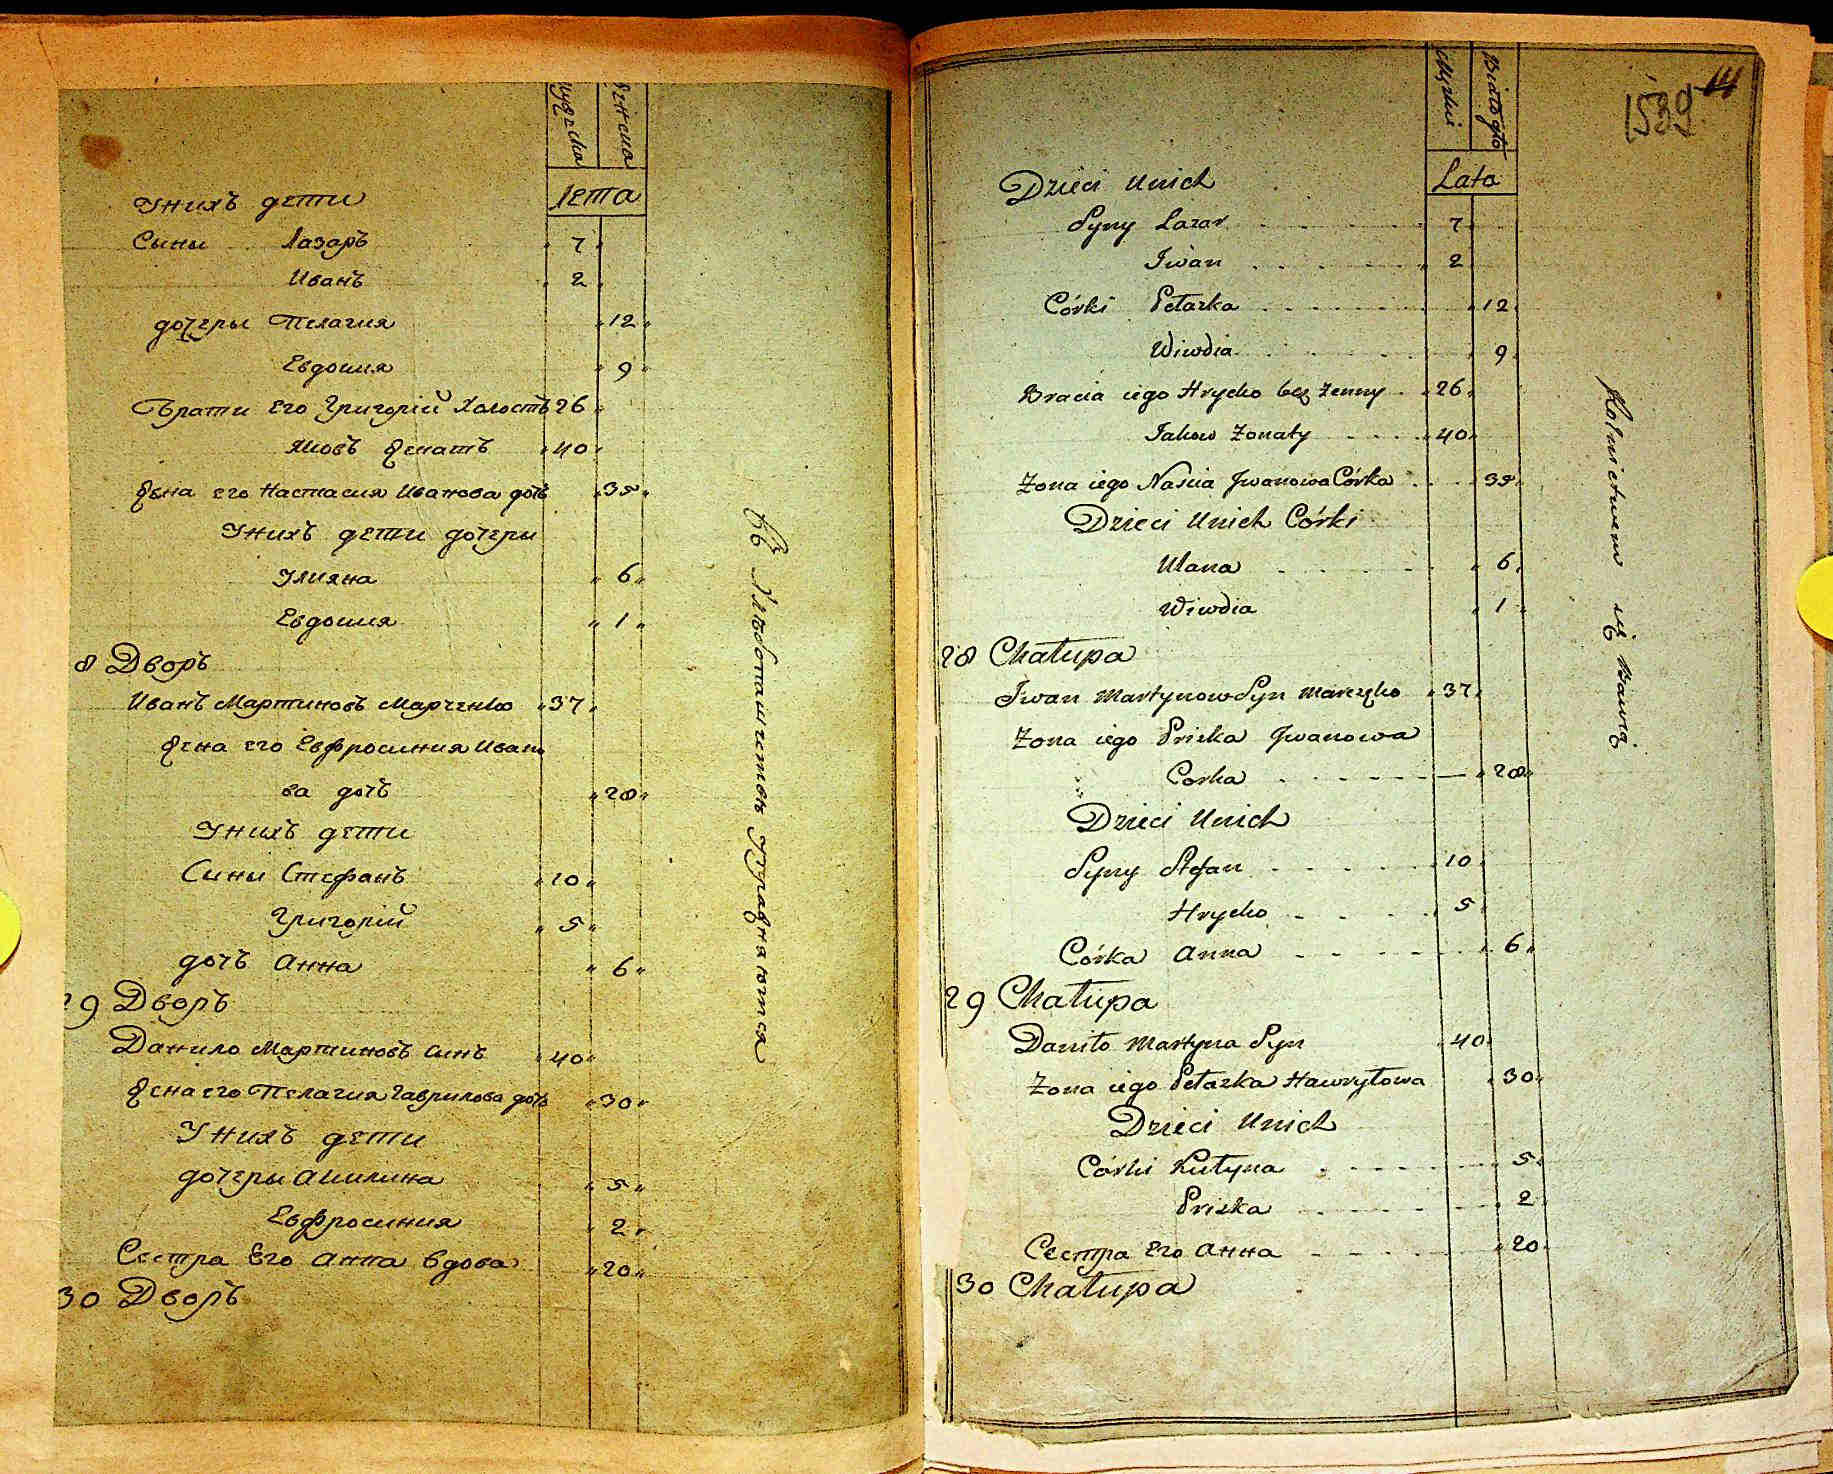 мужеска
женска
Лета
У нихъ дети
Сыны Лазаръ 7
Иванъ 2
дочеры Пелагия 12
Евдокия 9
Брати Его Григорій Холостъ 26
Яковъ женатъ 40
жена его Настасия Иванова дочь 35
У нихъ дети дочеры
Улияна 6
Евдокия 1
8 Дворъ
Иванъ Мартиновъ Марченко 37
жена его Евфросиния Ивано
ва дочь 28
У нихъ дети
Сины Стефанъ 10
Григорій 5
дочь Анна 6
29 Дворъ
Данило Мартиновъ синъ 40
жена его Пелагия Гаврилова дочь 30
У нихъ дети
дочеры Акилина 5
Евфросиния 2
Сестра Его Анна вдова 20
30 Дворъ
въ хлебопашестве упражняются
14
1539
Męzkie
Białogło
Lata
Dzieci Unich
Syny Lazar 7
Iwan 2
Córki Pełazka 12
Wiwdia 9
Bracia iego Hrycko bez Zenny 26
Jakow Zonaty 40
Zona iego Naścia Jwanowa Córka 35
Dzieci Unich Córki
Ulana 6
Wiwdia 1
28 Chałupa
Iwan Martynow Syn Marczko 37
Zona iego Priska Jwanowa
Corka 28
Dzieci Unich
Syny Stefan 10
Hrycko 5
Córka Anna 6
29 Chałupa
Daniło Martyna Syn 40
Zona iego Pełazka Hawryłowa 30
Dzieci Unich
Córki Kułyna 5
Priska 2
Сестра Его Анна 20
30 Chałupa
Rolnictwem się bawią